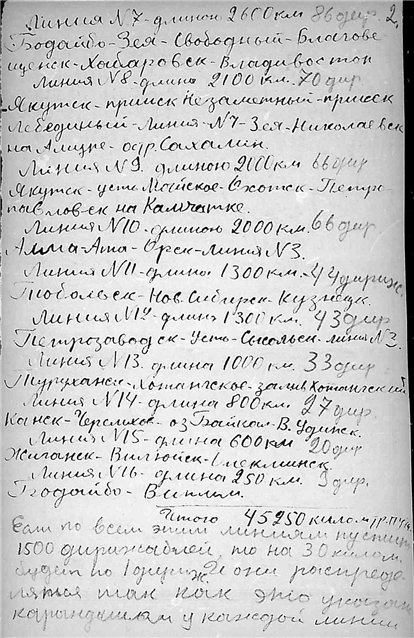 Линия №7-длиною 2600км 86дир. 2.
Бодайбо-Зея-Свободный-Благове
щенск-Хабаровск-Владивосток
Линия №8-длина 2100 км. 70 дир
Якутск-прииск Незаметный-прииск
Лебединый-Линия-№7-Зея-Николаевск
на Амуре-остр. Сахалин.
Линия №9. длиною 2000км 66дир
Якутск-усть Майское-Охотск-Петро-
павловск на Камчатке.
Линия №10-длиною 2000 км. 66дир
Алма-Ата-Орск-Линия №3.
Линия №11-длина 1300 км.-44дириж.
Тобольск-Нов. Сибирск-Кузнецк.
Линия №12-длина 1300 км. 43дир
Петрозаводск-Усто-Сысольск-линия №3.
Линия №13. длина 1000 км. 33дир
Туруханск-Хотангское-залив Хотангский
Линия №14-длина 800км. 27 дир.
Канск-Черемхово-оз Байкал-В. Удинск.
Линия №15-длина 600км 20дир
Жиганск-Вилюйск-Олекминск.
Линия №16-длина 250 км. 9дир.
Бодайбо-Витим.
Итого 45250
Если по всем этим линиям пустить
1500 дирижаблей, то на 30 килом.
будет по 1 дириж. И они распреде
ляться так как это указано
карандашом у каждой линии